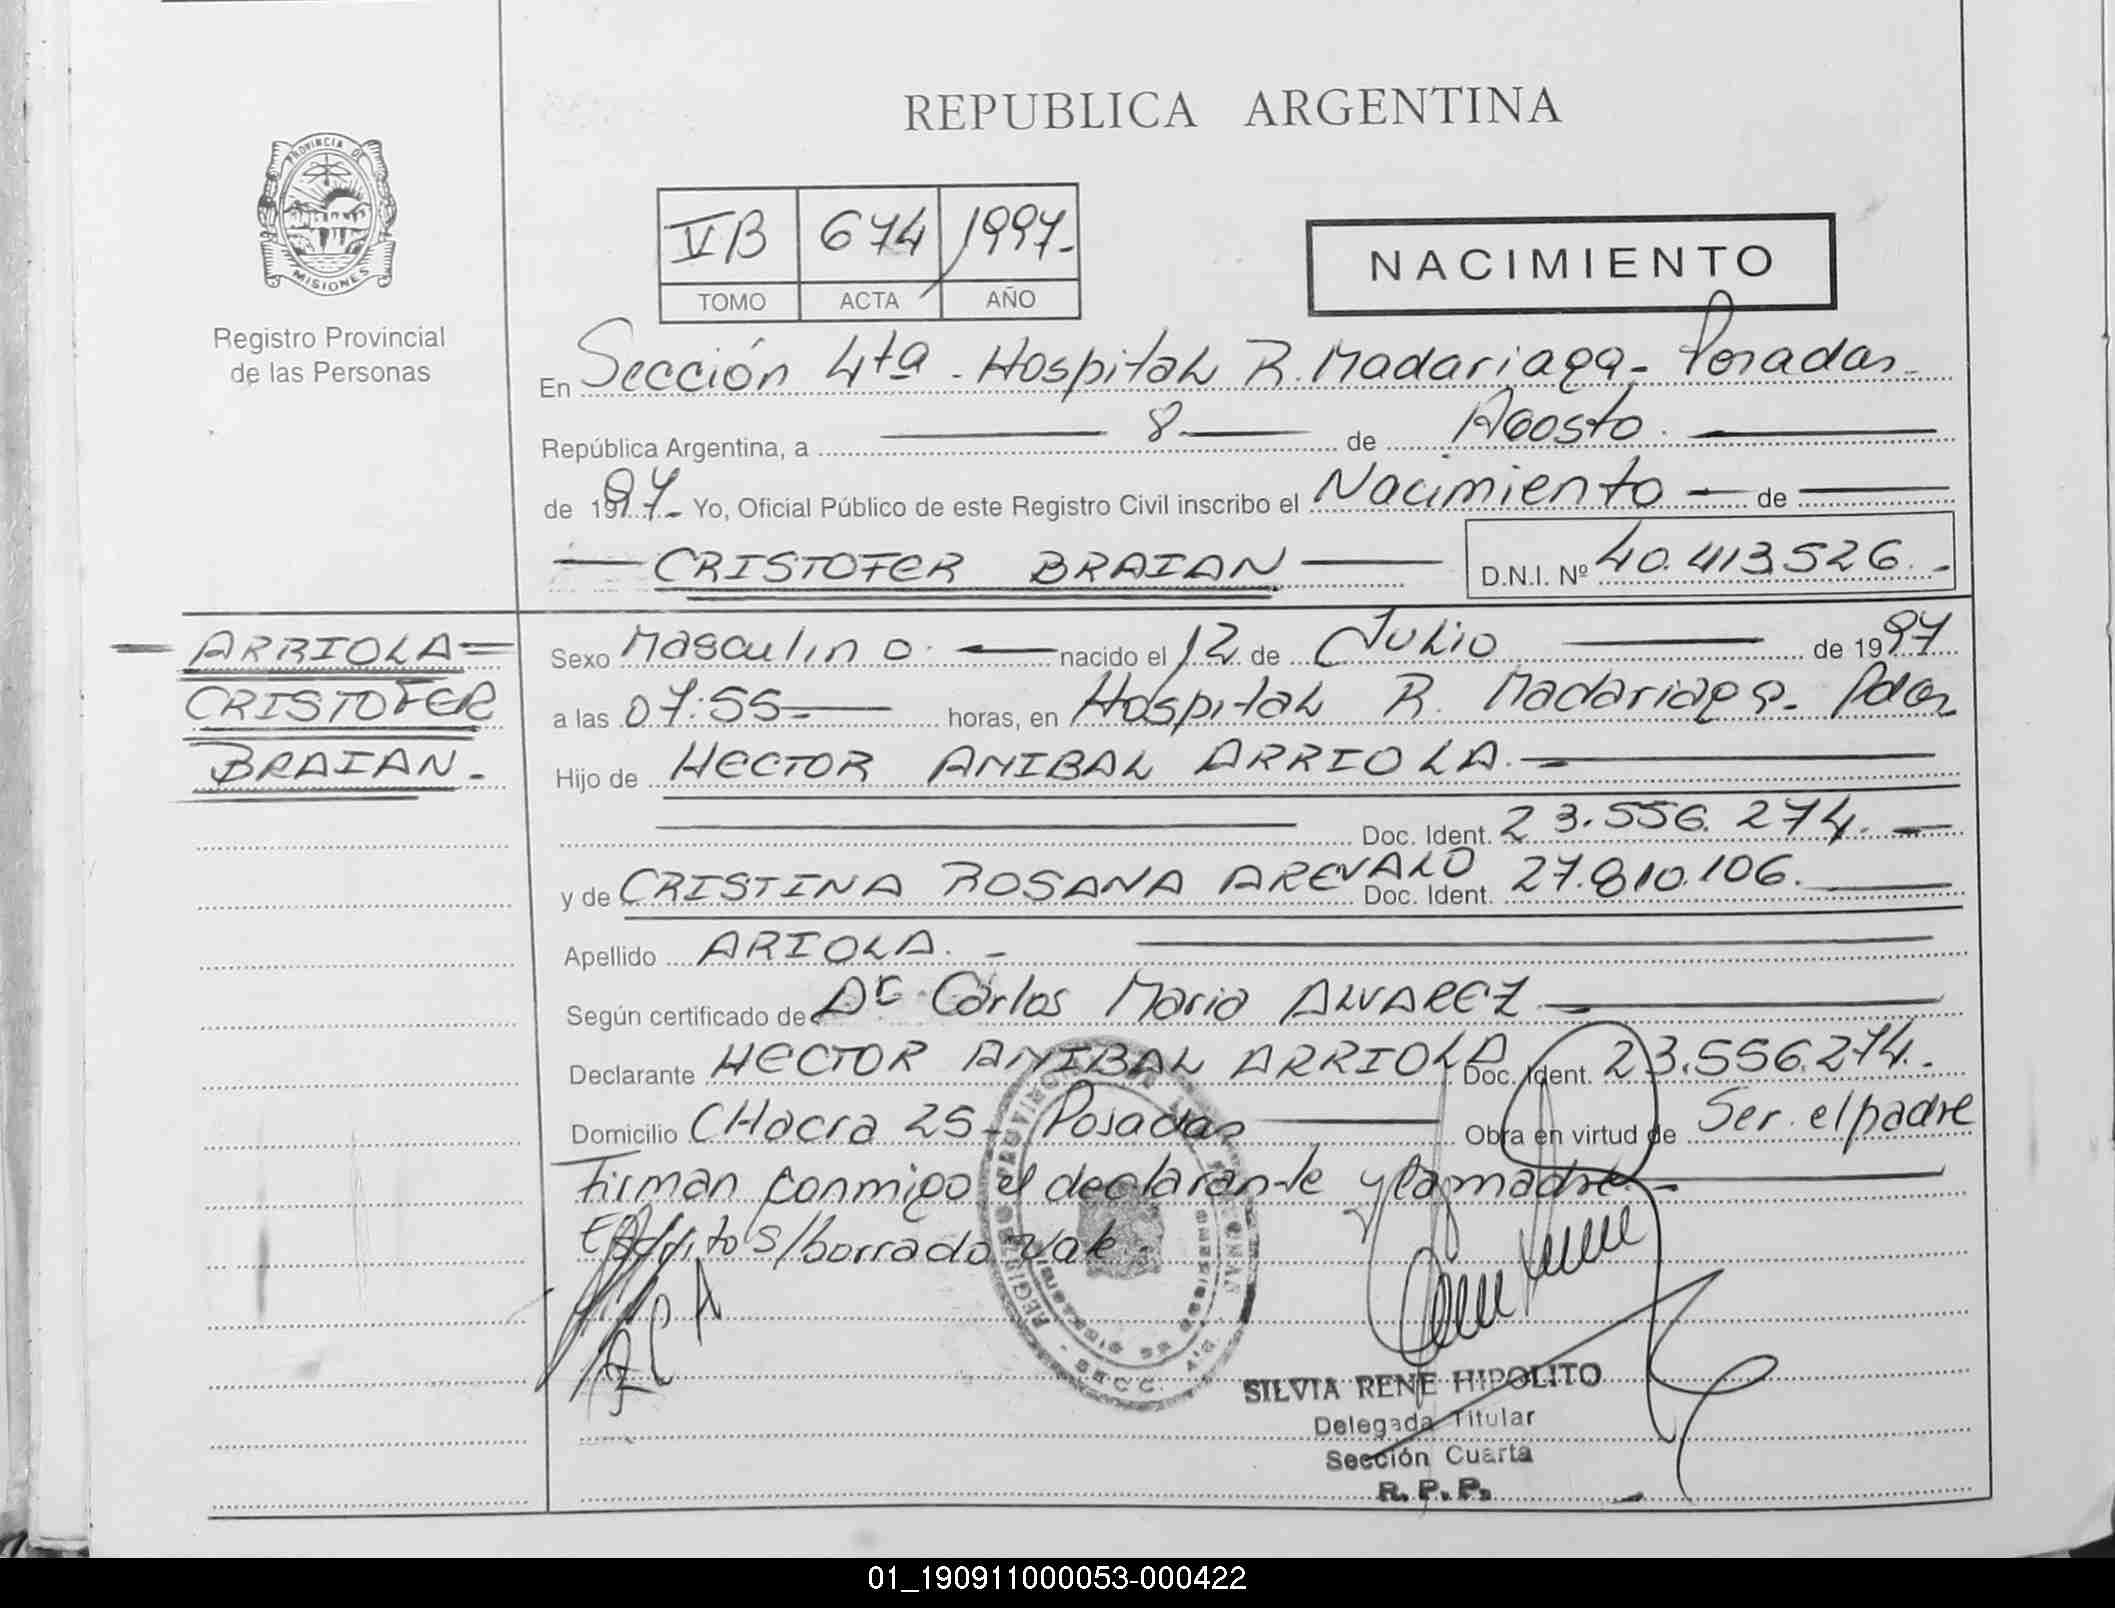 REPUBLICA ARGENTINA
PROVINCIA DE
MISIONES
Registro Provincial
de las Personas
VB 674 1997.-
TOMO ACTA AÑO
NACIMIENTO
En Sección 4ta - Hospital R. Madariaga - Posadas
República Argentina, a 8 de Agosto.
de 1997.- Yo, Oficial Público de este Registro Civil inscribo el Nacimiento de
CRISTOFER BRAIAN D.N.I. Nº 40.413.526.-
ARRIOLA
CRISTOFER
BRAIAN.-
Sexo Masculino. nacido el 12 de Julio de 1997
a las 07:55 horas, en Hospital R. Madariaga. Pdas
Hijo de HECTOR ANIBAL ARRIOLA.
Doc. Ident. 23.556.274.-
y de CRISTINA ROSANA AREVALO Doc. Ident. 27.810.106.
Apellido ARIOLA.-
Según certificado de Dr Carlos Maria ALVAREZ
Declarante HECTOR ANIBAL ARRIOLA Doc. Ident. 23.556.274.-
Domicilio CHacra 25- Posadas Obra en virtud de Ser el padre
Firman conmigo el declarante y la madre.-
Escrito s/borrado vale.
SILVIA RENE HIPOLITO
Delegada Titular
Sección Cuarta
R. P. P.
01_190911000053-000422